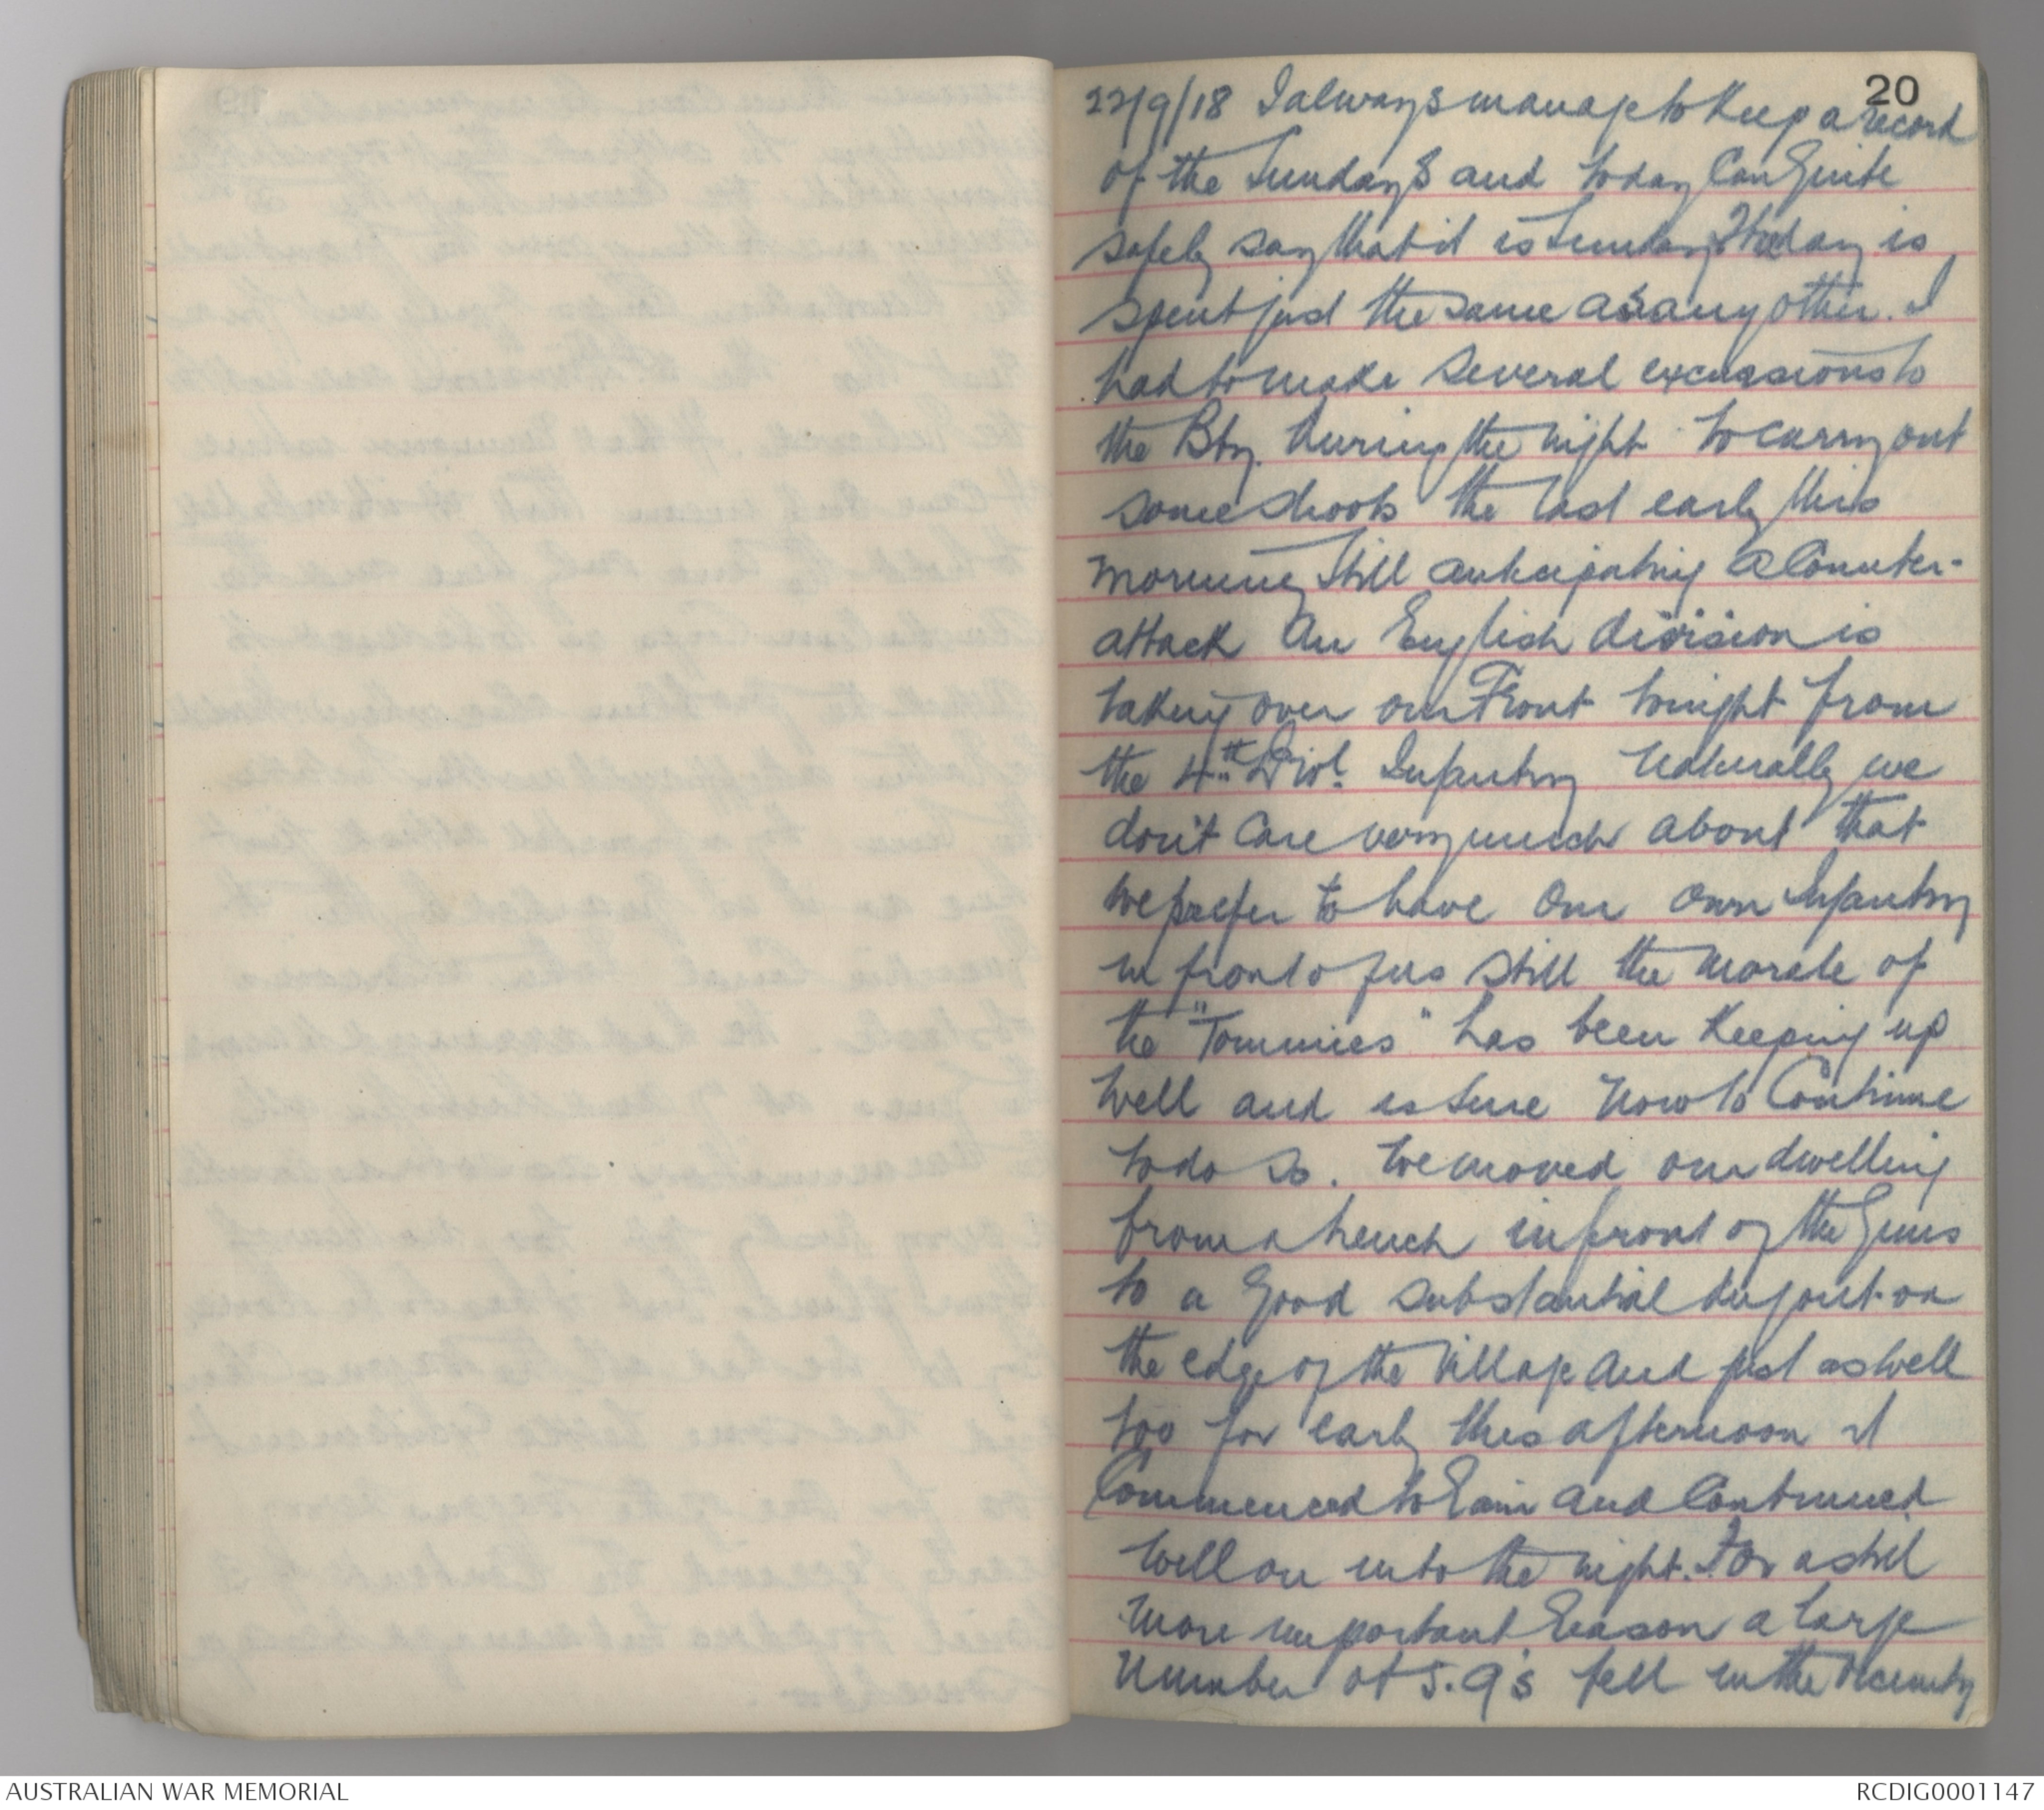 20
22/9/18 I always manage to keep a record
of the Sundays and today Can quite
safely say that it is Sunday. The day is
spent just the same as any other. I
had to make several excursions to
the Bty. During the night to carry out
some shoots the last early this
morning still anticipating a Counter-
attack An English division is
taking over our Front tonight from
the 4th Divl. Infantry Naturally we
don't Care very much about that
we prefer to have our own Infantry
in front of us still the morale of
the "Tommies" has been keeping up
well and is sure now to Continue
to do so. We moved our dwelling
from a trench in front of the Guns
to a good substantial dugout on
the edge of the village and just as well
too for early this afternoon it
Commenced to Rain and Continued
well on into the night. For a still
more important Reason a large
number of 5.9's fell in the vicinity
AUSTRALIAN WAR MEMORIAL
RCDIG0001147